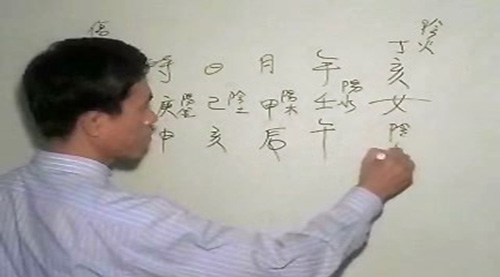 傷 陰火
時 日 月 年 丁亥
庚陽金 己陰土 甲陽木 壬陽水 女
申 亥 辰 午 陰